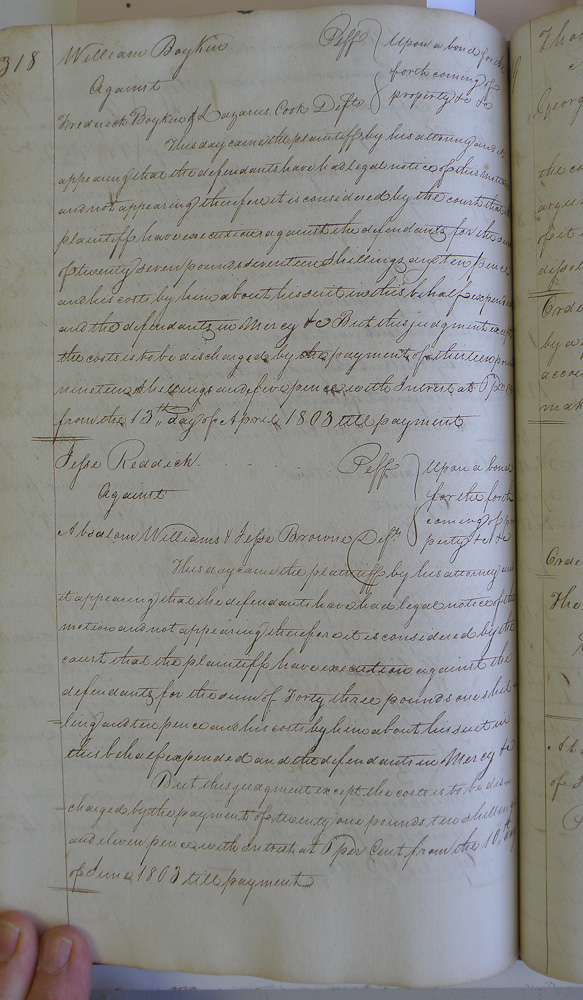 318
William Boykin Plff Upon a bond for the
Against forth coming of
Frederick Boykin & Lazarus Cook Defts property &c &c
This day came the plaintiff by his attorney and it
appearing that the defendants have had legal notice of this motion
and not appearing therefore it is considered by the court that the
plaintiff have execution against the defendants for the sum
of twenty seven pounds seventeen shillings and ten pence
and his costs by him about his suit in this behalf expended
and the defendants in Mercy &c But this judgment except
the costs is to be discharged by the payment of thirteen pounds
nineteen shillings and five pence with Interest at 6 per
from the 13th day of April 1803 till payment
Jesse Reddick Plff Upon a bond
Against for the forth
coming of pro
Absalom Williams & Jesse Browne Defts perty &c &c
This day came the plaintiff by his attorney and
it appearing that the defendants have had legal notice of this
motion and not appearing therefore it is considered by the
court that the plaintiff have execution against the
defendants for the sum of Forty three pounds one shil-
ling and ten pence and his costs by him about his suit in
this behalf expended and the defendants in Mercy &c
But this judgment except the costs is to be dis-
charged by the payment of twenty one pounds ten shillings
and eleven pence with Interest at 6 per Cent from the 10th day
of June 1803 till payment